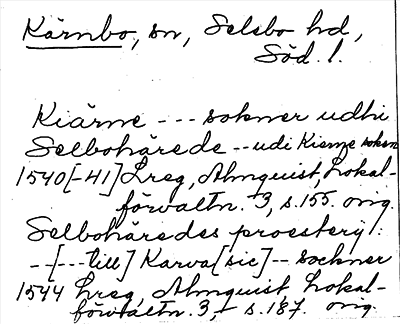 Kärnbo, sn, Selebo hd,
Söd. l.
Kiärne --- sokner udhi
Selbohärede -- udi Kierne sokn
1540[-41] Lreg, Almquist, Lokal-
förvaltn. 3, s. 155. orig.
Selbohäredes proesterij:
--[---till] Karva[sic] -- sockner
1544 Lreg, Almquist, Lokal-
förvaltn. 3, - s. 187. orig.